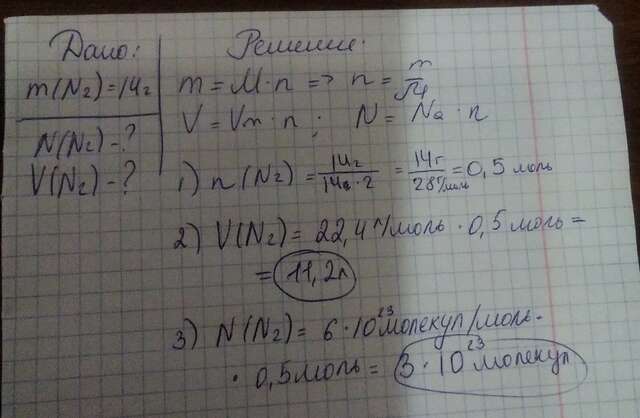 Дано:
m(N₂)=14г
N(N₂)-?
V(N₂)-?
Решение:
m = M·n => n = m/M
V = Vm·n; N = Na·n
1) n(N₂) = 14г/14а·2 = 14г/28г/моль = 0,5 моль
2) V(N₂) = 22,4 л/моль · 0,5 моль =
= 11,2л
3) N(N₂) = 6·10²³ молекул/моль·
· 0,5 моль = 3·10²³ молекул